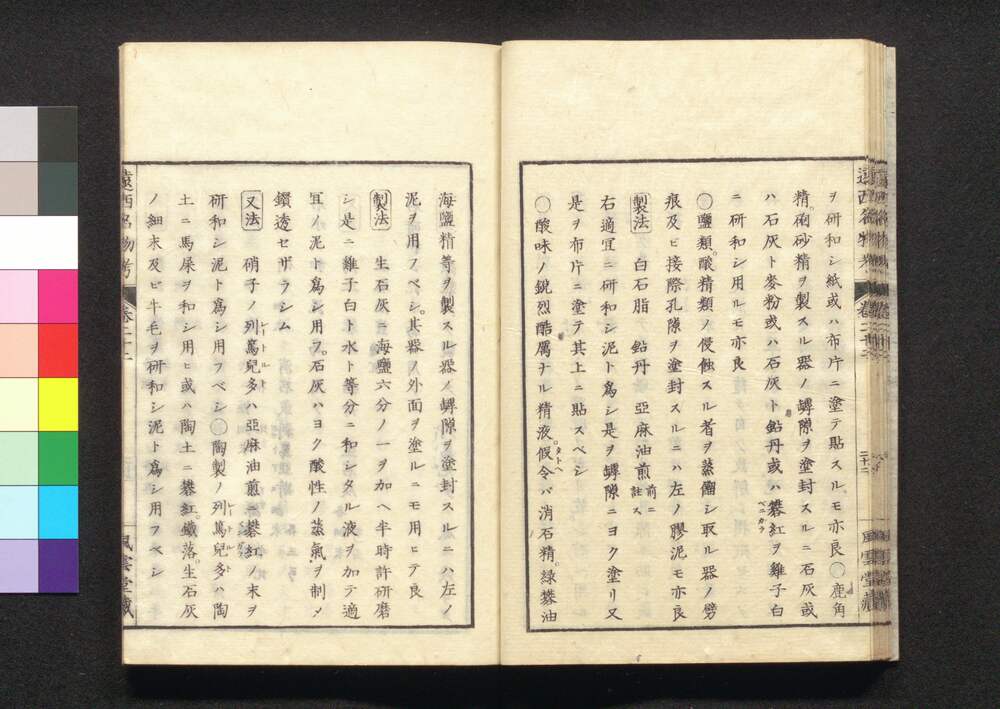 ヲ研和シ紙或ハ布片ニ塗テ貼スルモ亦良◯鹿角
精。硇砂精ヲ製スル器ノ罅隙ヲ塗封スルニ石灰或
ハ石灰ト麥粉或ハ石灰ト鉛丹或ハ礬紅ベニガラヲ雞子白
ニ研和シ用ルモ亦良
◯鹽類。酸精類ノ侵蝕スル者ヲ蒸餾シ取ル器ノ
痕及ビ接際孔隙ヲ塗封スルニハ左ノ膠泥モ亦良
製法 白石脂 鉛丹 亞麻油煎前ニ註ス
右適宜ニ研和シ泥ト爲シ是ヲ罅隙ニヨク塗リ又
是ヲ布片ニ塗テ其上ニ貼スベシ
◯酸味ノ銳烈酷厲ナル精液。假令タトヘバ消石精。綠礬油
海鹽精等ヲ製スル器ノ罅隙ヲ塗封スルニハ左ノ
泥ヲ用フベシ。其器ノ外面ヲ塗ルニモ用ヒテ良
製法 生石灰ニ海鹽六分ノ一ヲ加ヘ半時許研磨
シ是ニ雞子白ト水ト等分ニ和シタル液ヲ加テ適
宜ノ泥ト爲シ用フ。石灰ハヨク酸性ノ蒸氣ヲ制メ
鑽透セザラシム
又法 硝子ノ列篤兒多レートルトハ亞麻油煎ニ礬紅ノ末ヲ
研和シ泥ト爲シ用フベシ◯陶製ノ列篤兒多レートルトハ陶
土ニ馬屎ヲ和シ用ヒ或ハ陶土ニ礬紅。鐵落。生石灰
ノ細末及ビ牛毛ヲ研和シ泥ト爲シ用フベシ
遠西名物考
卷二十二
二十二
風雲堂藏